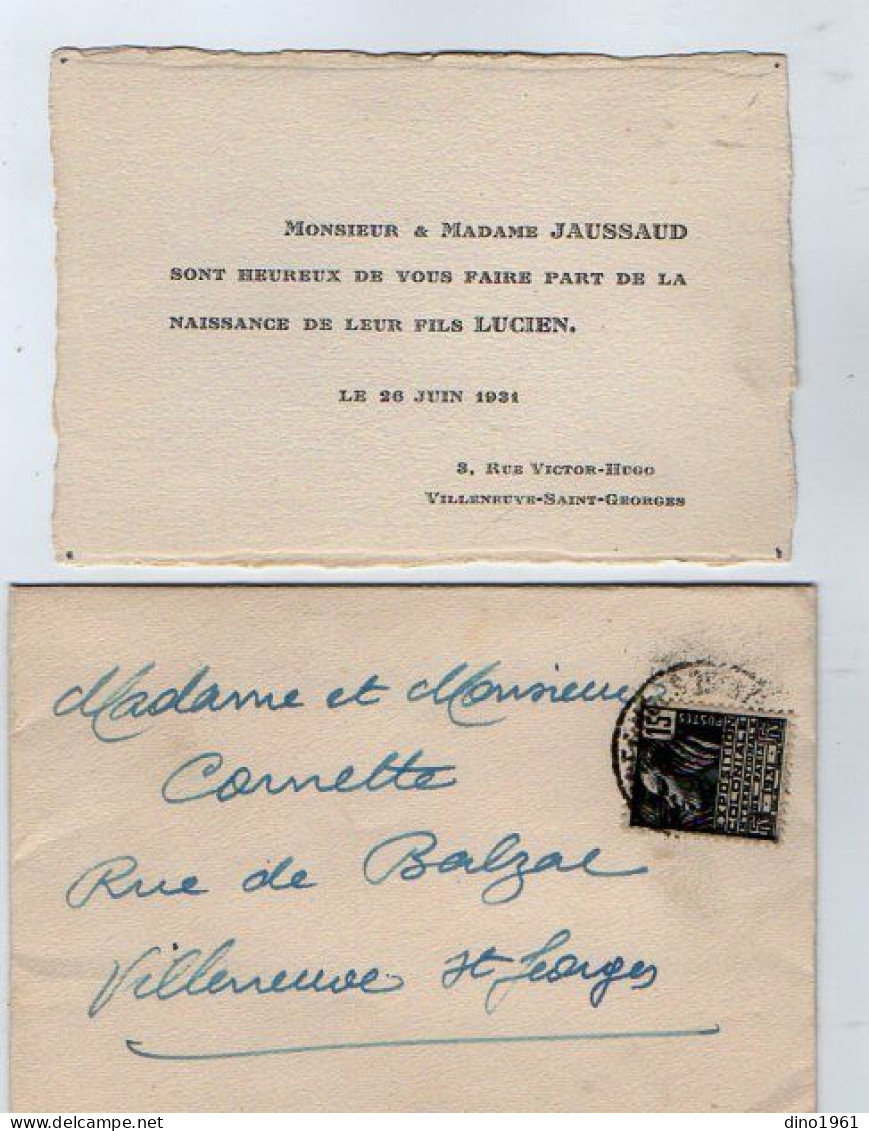 MONSIEUR & MADAME JAUSSAUD
SONT HEUREUX DE VOUS FAIRE PART DE LA
NAISSANCE DE LEUR FILS LUCIEN.
LE 26 JUIN 1931
3, RUE VICTOR-HUGO
VILLENEUVE-SAINT-GEORGES
Madame et Monsieur
Cornette
Rue de Balzac
Villeneuve St Georges
15c
POSTES
EXPOSITION
COLONIALE
INTERNATIONALE
PARIS
1931
dino1961